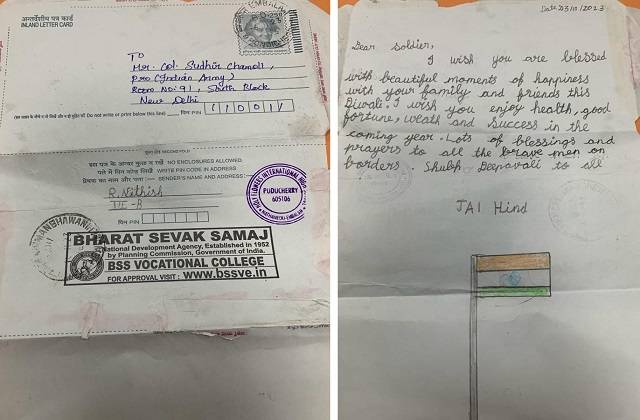 अन्तर्देशीय पत्र कार्ड
INLAND LETTER CARD
To
Mr. Col. Sudhir Chamoli,
Pro (Indian Army)
Room No: 91, South Block
New Delhi
पिन PIN 110011
NO ENCLOSURES ALLOWED
WRITE PIN CODE IN ADDRESS
SENDER'S NAME AND ADDRESS:
R. Nithish
पिन PIN
PUDUCHERRY
605106
BHARAT SEVAK SAMAJ
National Development Agency, Established in 1952
by Planning Commission, Government of India.
BSS VOCATIONAL COLLEGE
FOR APPROVAL VISIT : www.bssve.in
Date:03/10/2023
Dear soldier,
I wish you are blessed
with beautiful moments of happiness
with your family and friends this
Diwali. I wish you enjoy health, good
fortune, weath and success in the
coming year. Lots of blessings and
prayers to all the brave men on
borders. Shubh Deepavali to all
JAI Hind